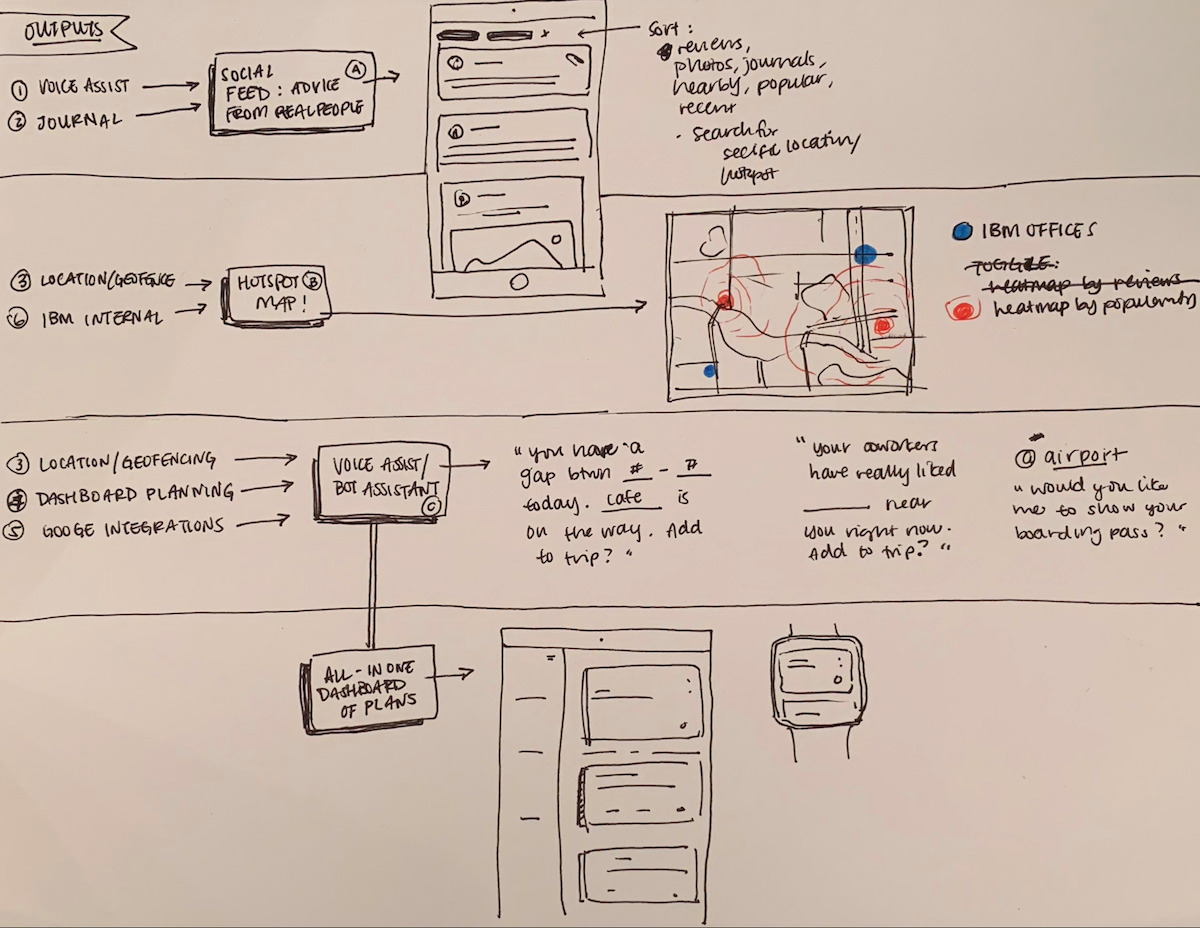 OUTPUTS
① VOICE ASSIST
② JOURNAL
SOCIAL Ⓐ
FEED: ADVICE
FROM REAL PEOPLE
sort:
reviews,
photos, journals,
nearby, popular,
recent
- search for
secific location/
hotspot
③ LOCATION/GEOFENCE
⑥ IBM INTERNAL
HOTSPOT Ⓑ
MAP!
IBM OFFICES
TOGGLE:
heatmap by reviews
heatmap by popularity
③ LOCATION/GEOFENCING
④ DASHBOARD PLANNING
⑤ GOOGE INTEGRATIONS
VOICE ASSIST/
BOT ASSISTANT
Ⓒ
"you have a
gap btwn # - #
today. cafe is
on the way. Add
to trip?"
"your coworkers
have really liked
____ near
you right now.
Add to trip?"
@ airport
"would you like
me to show your
boarding pass?"
ALL-IN ONE
DASHBOARD
OF PLANS